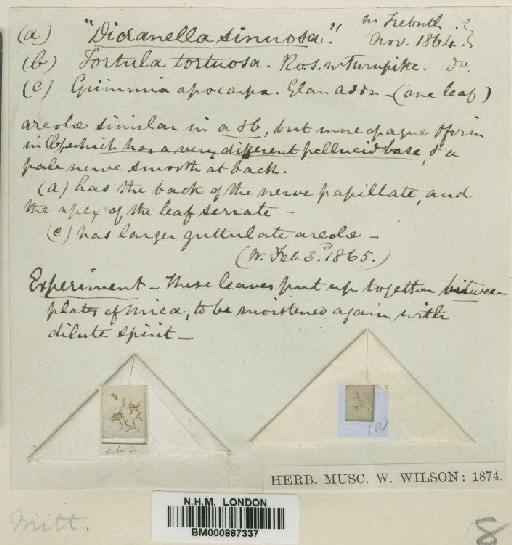 (a) "Dicranella sinuosa." Nov. 1864.
(b) Tortula tortuosa. Ross. Turnpike. do.
(c) Grimmia apocarpa. (one leaf)
areolæ similar in a & b, but more opaque & firm
in b, which has a very different pellucid base, & a
pale nerve smooth at back.
(a) has the back of the nerve papillate, and
the apex of the leaf serrate –
(c) has larger guttulate areolæ –
(W. Feb. 3. 1865.)
Experiment – These leaves put up together between
plates of mica, to be moistened again with
dilute spirit –
HERB. MUSC. W. WILSON: 1874.
N.H.M. LONDON
BM000987337
Mitt.
8